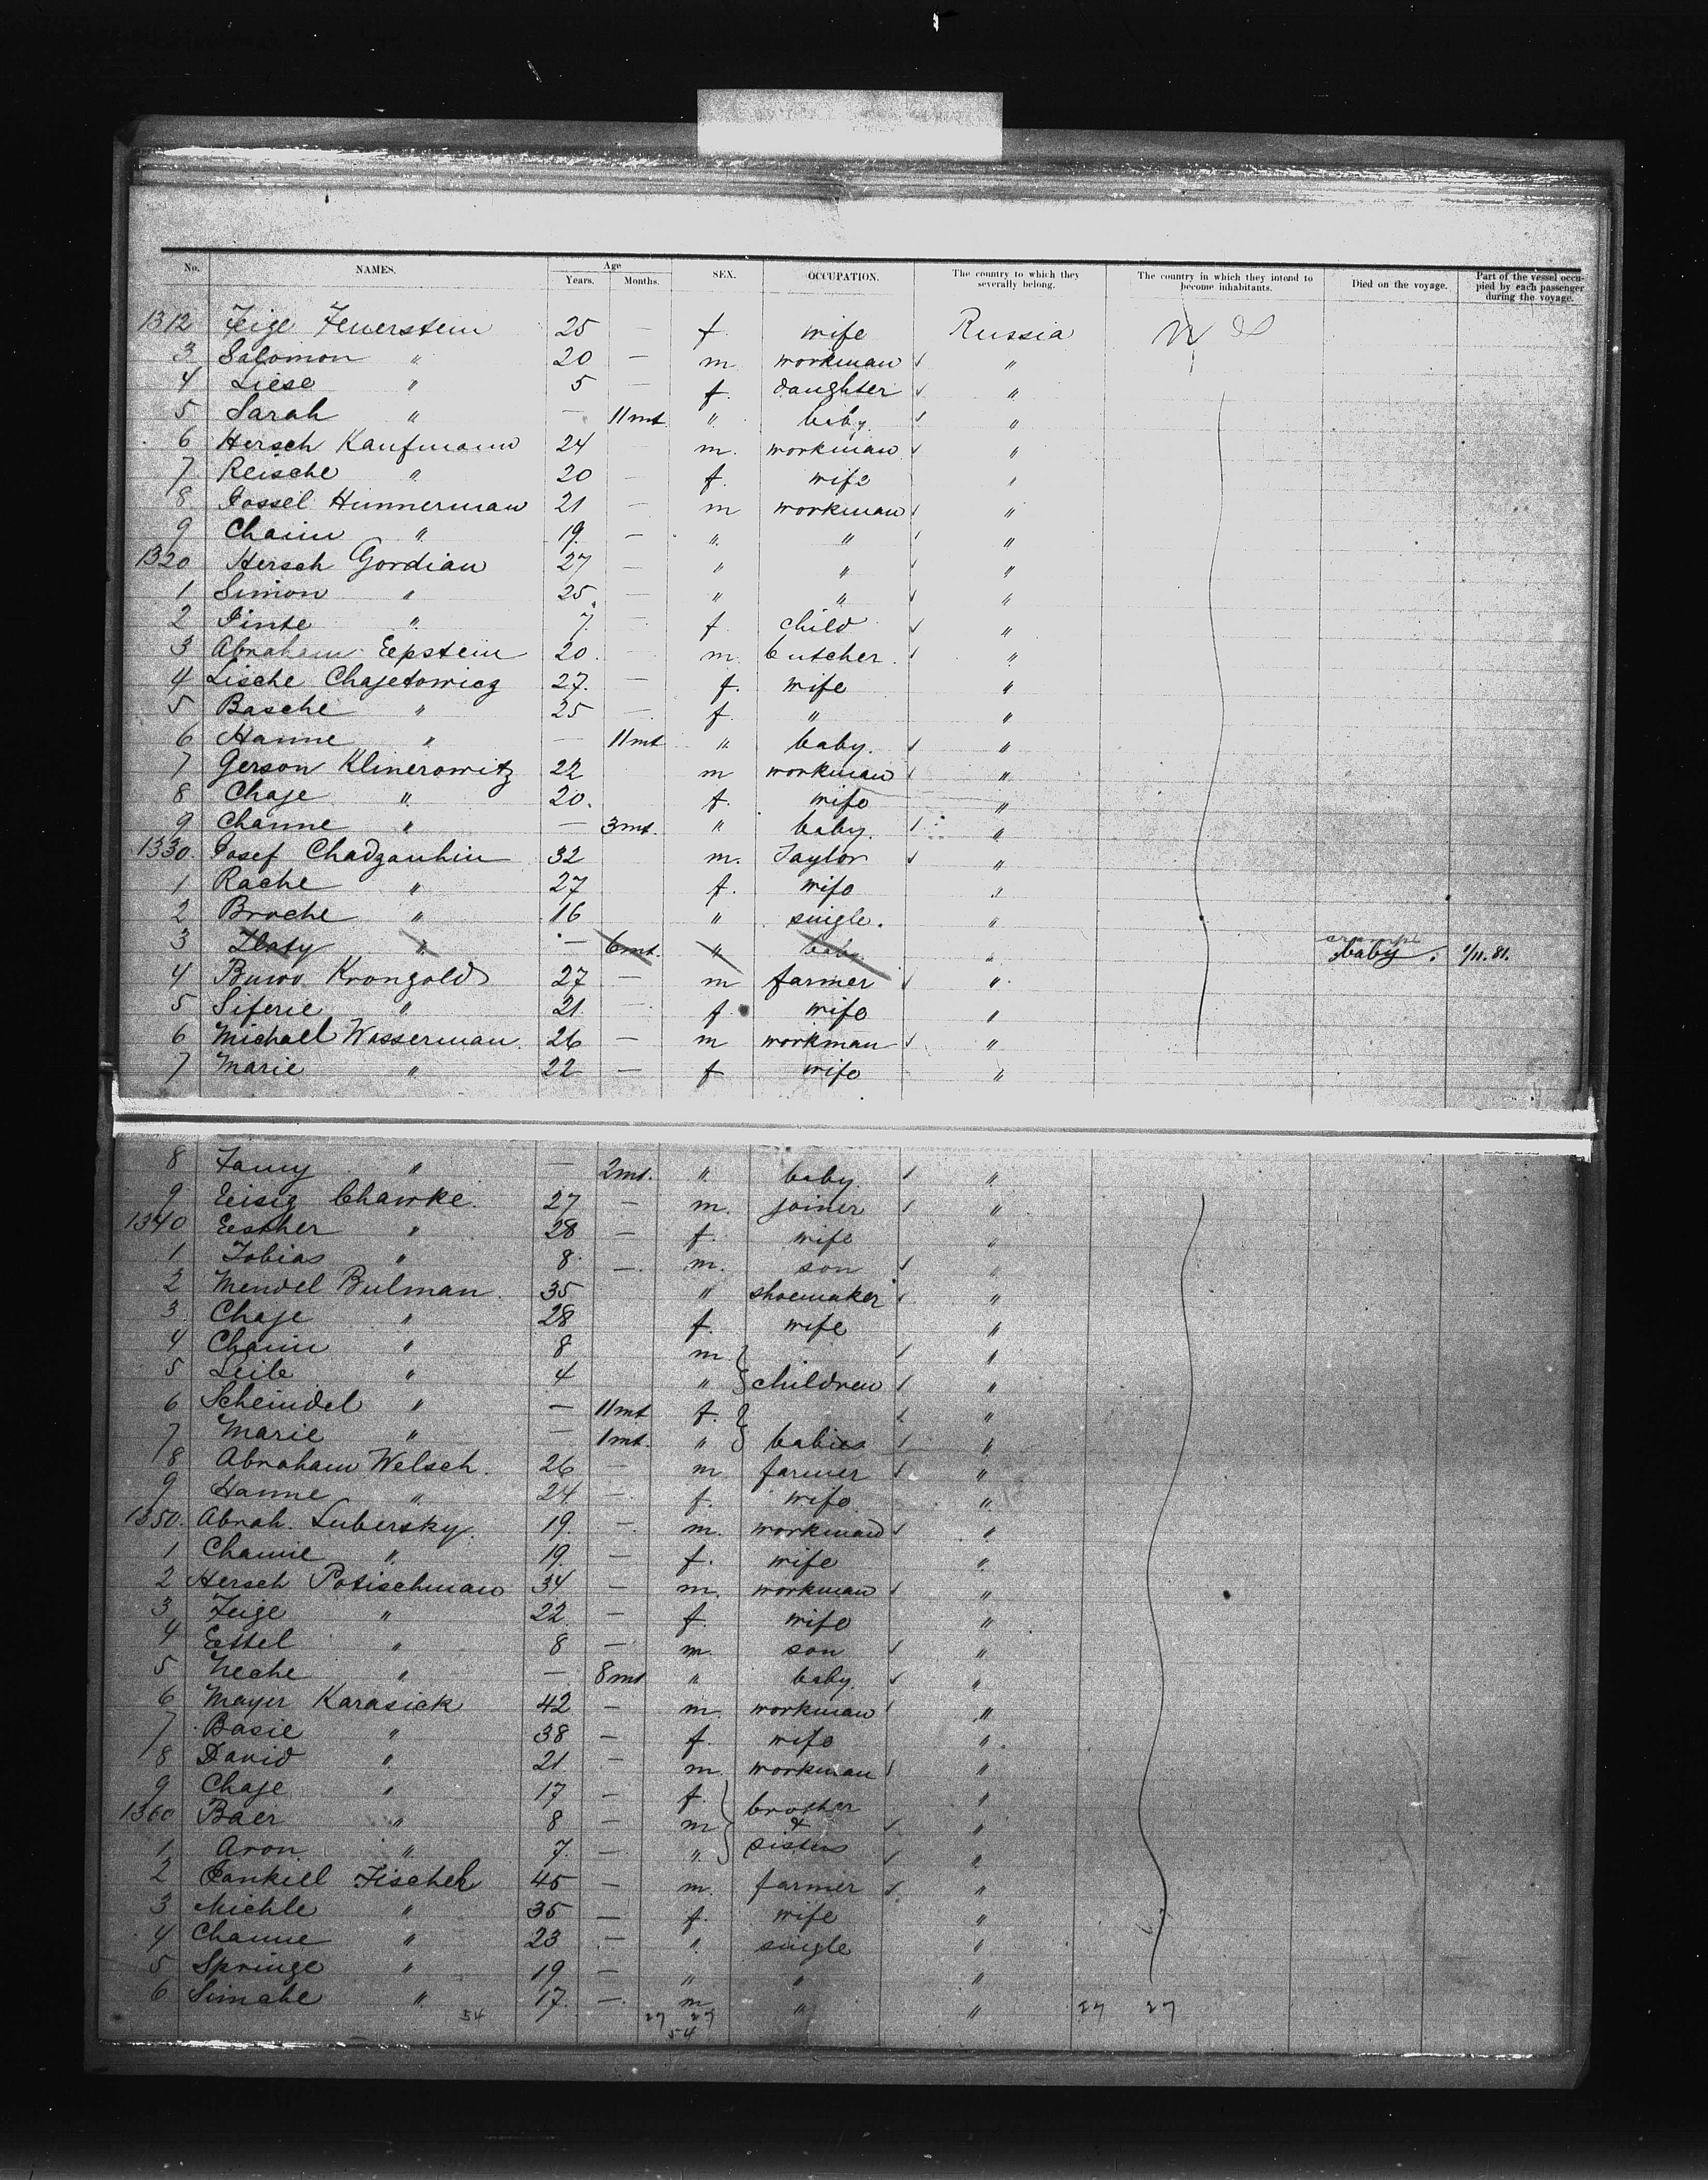 No. NAMES. Age Years. Months. SEX. OCCUPATION. The country to which they severally belong. The country in which they intend to become inhabitants. Died on the voyage. Part of the vessel occupied by each passenger during the voyage.
1312 Feige Feuerstein 25 — f. wife Russia
3 Salomon " 20 — m workman "
4 Liese " 5 — f. daughter "
5 Sarah " — 11 mt " baby. "
6 Hersch Kaufmann 24 m. workman "
7 Reische " 20 — f. wife "
8 Jossel Himmerman 21 — m workman "
9 Chaim " 19. — " " "
1320 Hersch Gordian 27 — " " "
1 Simon " 25. — " " "
2 " 7. — f child "
3 Abraham Eepstein 20. — m. butcher. "
4 Lische Chajetowicz 27. — f. wife "
5 Basche " 25 — f " "
6 Hanne " — 11 mt " baby. "
7 Gerson Klinerowitz 22 m workman "
8 Chaje " 20. f. wife "
9 Channe " — 3 mt. " baby. "
1330. Josef Chadzanhin 32 m. Taylor "
1 Rache " 27 f. wife "
2 Broche " 16 " single. "
3 Zlaty " — 6 mt. " baby " baby. 1/11.81.
4 Krongold 27 — m farmer "
5 Siferie " 21 — f wife "
6 Michael Wasserman 26 — m workman "
7 Marie " 22 — f wife "
8 Fanny " — 2 mt. " baby. "
9 Eisig Chawke. 27 — m. joiner "
1340 Eesther " 28 — f. wife "
1 Tobias " 8. — m. son "
2 Mendel Bulman. 35 " shoemaker "
3. Chaje " 28 f. wife "
4 Chaim " 8 m "
5 Leib " 4 " children "
6 Scheindel " — 11 mt f. "
7 Marie " — 1 mt. " babies "
8 Abraham Welsch. 26 — m farmer "
9 Hanne " 24 — f. wife "
1350. Abrah. Lubersky. 19. — m. workman "
1 Channe " 19. — f. wife "
2 Hersch Potischman 34 — m. workman "
3 Feige " 22 — f. wife "
4 Ettel " 8 — m. son "
5 Neche " — 8 mt " baby. "
6 Mayer Karasick 42 — m. workman "
7 Basie " 38 — f. wife "
8 David " 21 — m. workman "
9 Chaje " 17 — f. brother "
1360 Baer " 8 — m & "
1 Aron " 7. — " sisters "
2 Jankiel Fischel 45 — m. farmer "
3 Michle " 35 — f. wife "
4 Channe " 23 — " single "
5 Springe " 19 — " " "
6 Simche " 17. — m " "
54 27 27 27 27
54